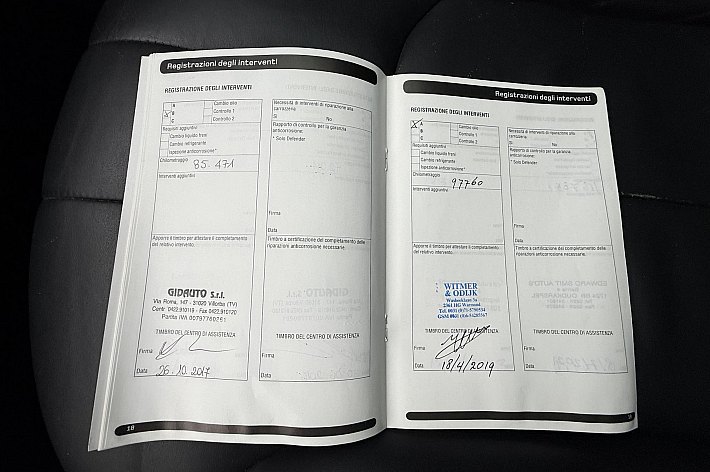 Registrazioni degli interventi
REGISTRAZIONE DEGLI INTERVENTI
A Cambio olio
X B Controllo 1
C Controllo 2
Requisiti aggiuntivi
Cambio liquido freni
Cambio refrigerante
Ispezione anticorrosione*
Chilometraggio 85.471
Interventi aggiuntivi
Apporre il timbro per attestare il completamento
del relativo intervento.
GIDAUTO S.r.l.
Via Roma, 147 - 31020 Villorba (TV)
Centr. 0422.910119 - Fax 0422.910120
Partita IVA
TIMBRO DEL CENTRO DI ASSISTENZA
Firma
Data 26.10.2017
18
Necessità di interventi di riparazione alla
carrozzeria
Sì No
Rapporto di controllo per la garanzia
anticorrosione:
* Solo Defender
Firma
Data
Timbro a certificazione del completamento delle
riparazioni anticorrosione necessarie.
TIMBRO DEL CENTRO DI ASSISTENZA
Firma
Data
Registrazioni degli interventi
REGISTRAZIONE DEGLI INTERVENTI
X A Cambio olio
B Controllo 1
C Controllo 2
Requisiti aggiuntivi
Cambio liquido freni
Cambio refrigerante
Ispezione anticorrosione*
Chilometraggio 97760
Interventi aggiuntivi
Apporre il timbro per attestare il completamento
del relativo intervento.
WITMER
& ODIJK
2361 HG Warmond
TIMBRO DEL CENTRO DI ASSISTENZA
Firma
Data 18/4/2019
Necessità di interventi di riparazione alla
carrozzeria
Sì No
Rapporto di controllo per la garanzia
anticorrosione:
* Solo Defender
Firma
Data
Timbro a certificazione del completamento delle
riparazioni anticorrosione necessarie.
TIMBRO DEL CENTRO DI ASSISTENZA
Firma
Data